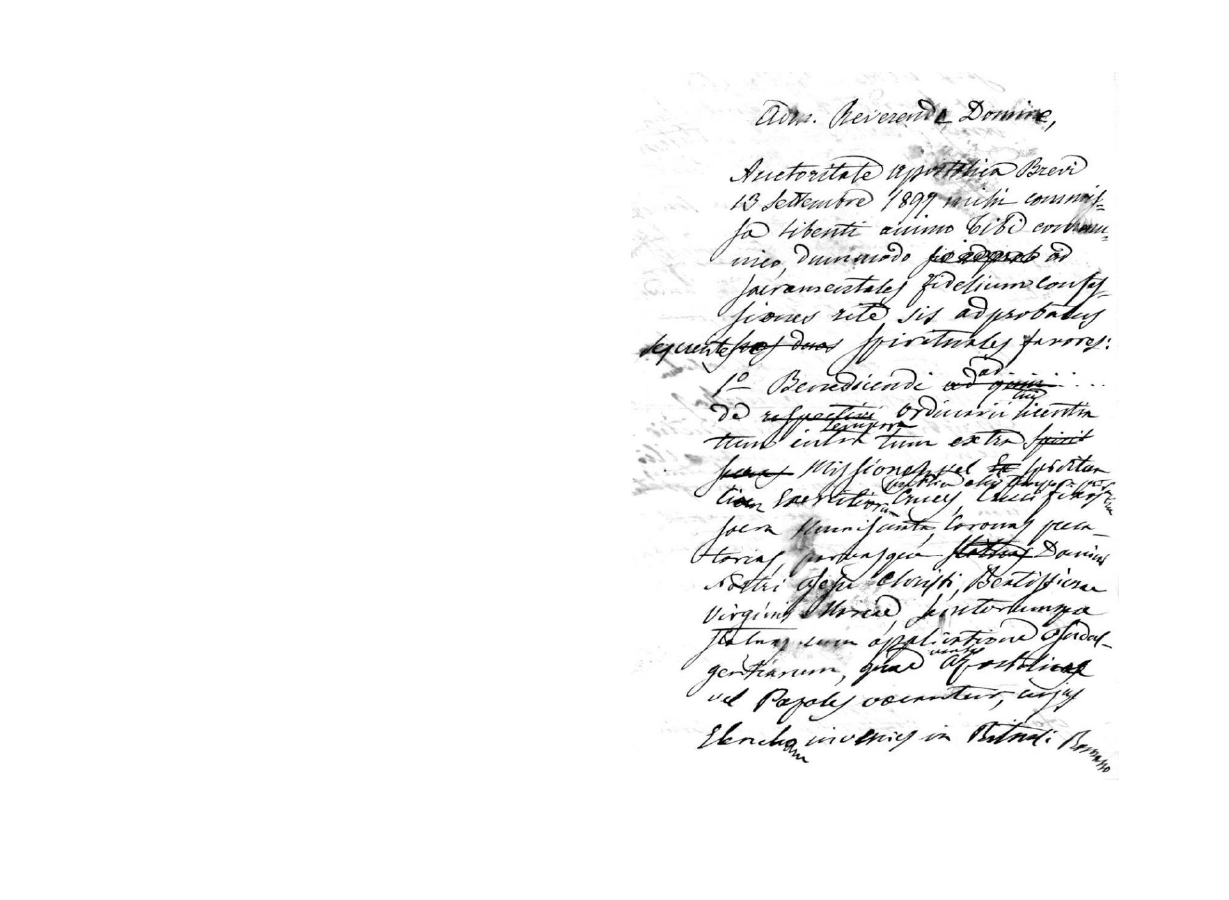 Adm. Reverende Domine,
Auctoritate apostolica Brevi
13 Settembre 1899 mihi commis-
sa libenti animo Tibi commu-
nico, dummodo ad
sacramentales fidelium confes-
siones rite sis adprobatus
sequentes duos spirituales favores:
1º Benedicendi ad . . . .
de respective ordinarii licentia
tum intra tum extra
Missiones vel spiritua
lium Exercitiorum Cruces Crucifixos
sacra Numismata, Coronas preca-
torias, parvasque statuas Domini
Nostri Jesu Christi, Beatissimae
Virginis Mariae, sanctorumque
cum applicatione Indul-
gentiarum, quae Apostolicae
vel Papales vocantur, cujus
Elenchum invenies in Rituali Romano